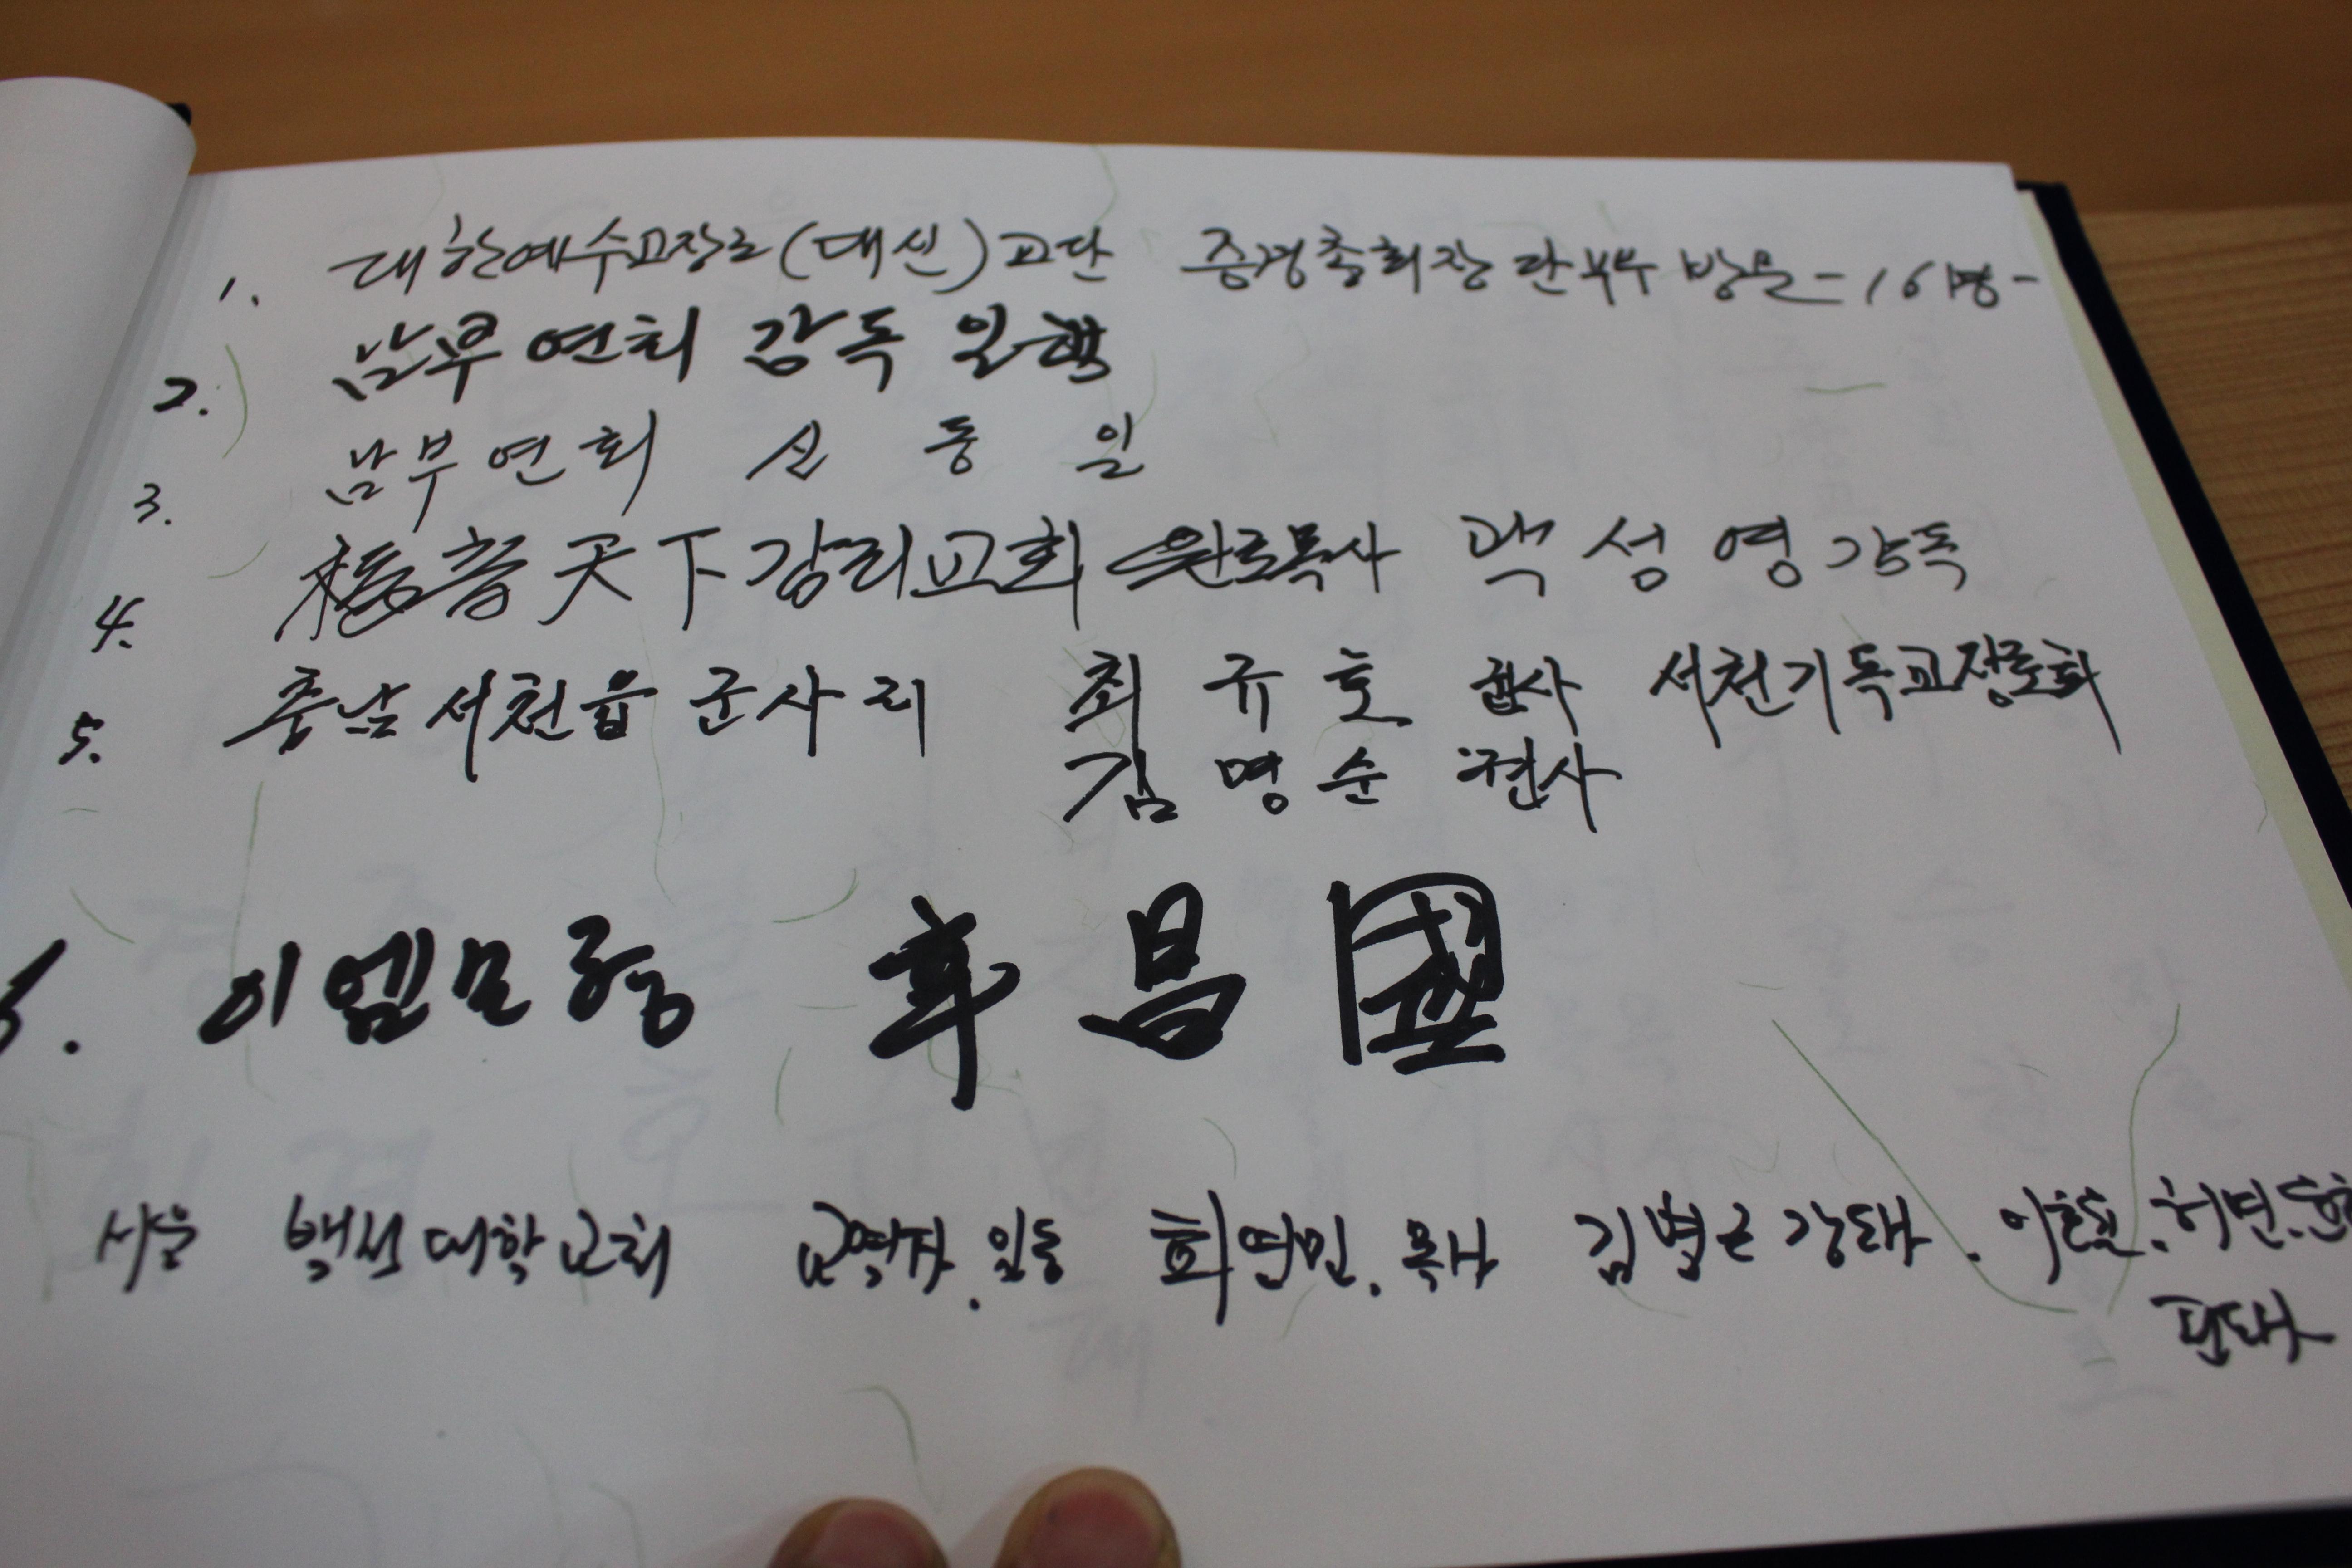 1. 대한예수교장로(대신)교단 증경총회장단부부 방문 - 16명 -
2. 남부연회 감독 일행
3. 남부연회 신동일
4. 福音天下감리교회 원로목사 맥성영감독
5. 충남서천읍 군사리 최규호 집사 서천기독교장로회
김명순 권사
6. 이엠모형 辛昌國
서울 백석대학교회 교역자.일동 최연민.목사 김병근